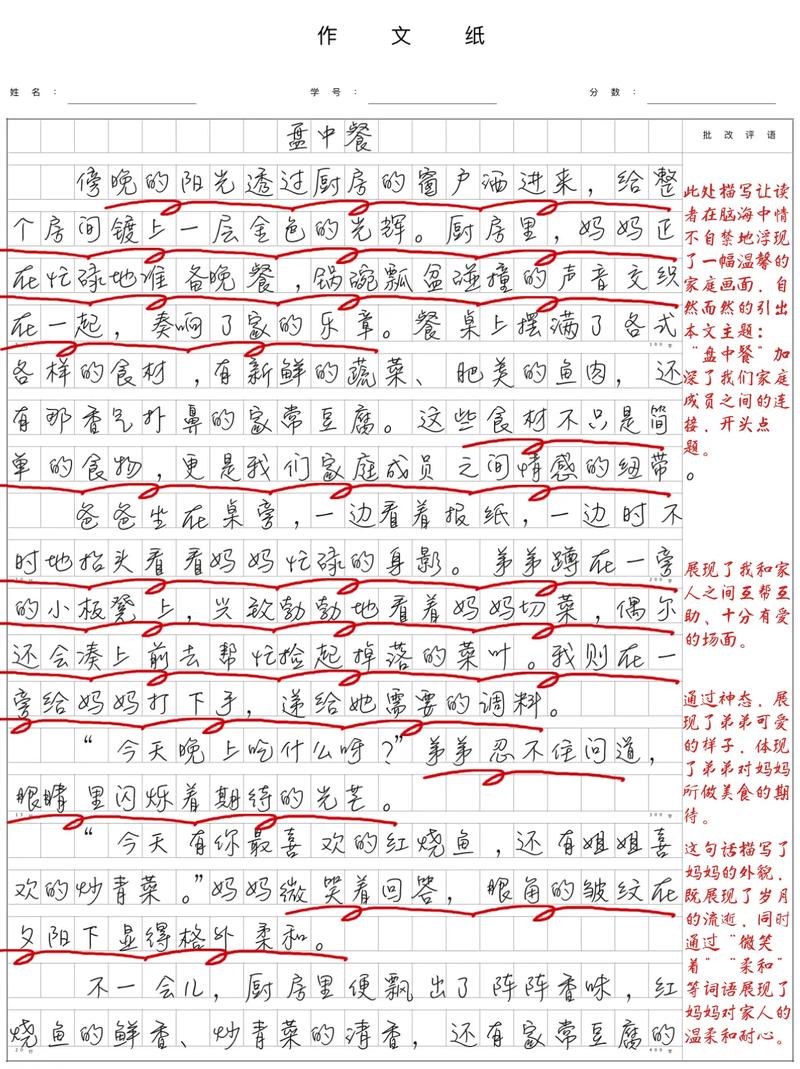 作文纸
姓名： 学号： 分数：
盘中餐
批改评语
傍晚的阳光透过厨房的窗户洒进来，给整
个房间镀上一层金色的光辉。厨房里，妈妈正
在忙碌地准备晚餐，锅碗瓢盆碰撞的声音交织
在一起，奏响了家的乐章。餐桌上摆满了各式
各样的食材，有新鲜的蔬菜、肥美的鱼肉，还
有那香气扑鼻的家常豆腐。这些食材不只是简
单的食物，更是我们家庭成员之间情感的纽带
。
爸爸坐在桌旁，一边看着报纸，一边时不
时地抬头看看妈妈忙碌的身影。弟弟蹲在一旁
的小板凳上，兴致勃勃地看着妈妈切菜，偶尔
还会凑上前去帮忙捡起掉落的菜叶。我则在一
旁给妈妈打下手，递给她需要的调料。
“今天晚上吃什么呀？”弟弟忍不住问道，
眼睛里闪烁着期待的光芒。
“今天有你最喜欢的红烧鱼，还有姐姐喜
欢的炒青菜。”妈妈微笑着回答，眼角的皱纹在
夕阳下显得格外柔和。
不一会儿，厨房里便飘出了阵阵香味，红
烧鱼的鲜香、炒青菜的清香，还有家常豆腐的
此处描写让读
者在脑海中情
不自禁地浮现
了一幅温馨的
家庭画面，自
然而然的引出
本文主题：
“盘中餐”加
深了我们家庭
成员之间的连
接，开头点
题。
展现了我和家
人之间互帮互
助、十分有爱
的场面。
通过神态，展
现了弟弟可爱
的样子，体现
了弟弟对妈妈
所做美食的期
待。
这句话描写了
妈妈的外貌，
既展现了岁月
的流逝，同时
通过“微笑
着”“柔和”
等词语展现了
妈妈对家人的
温柔和耐心。